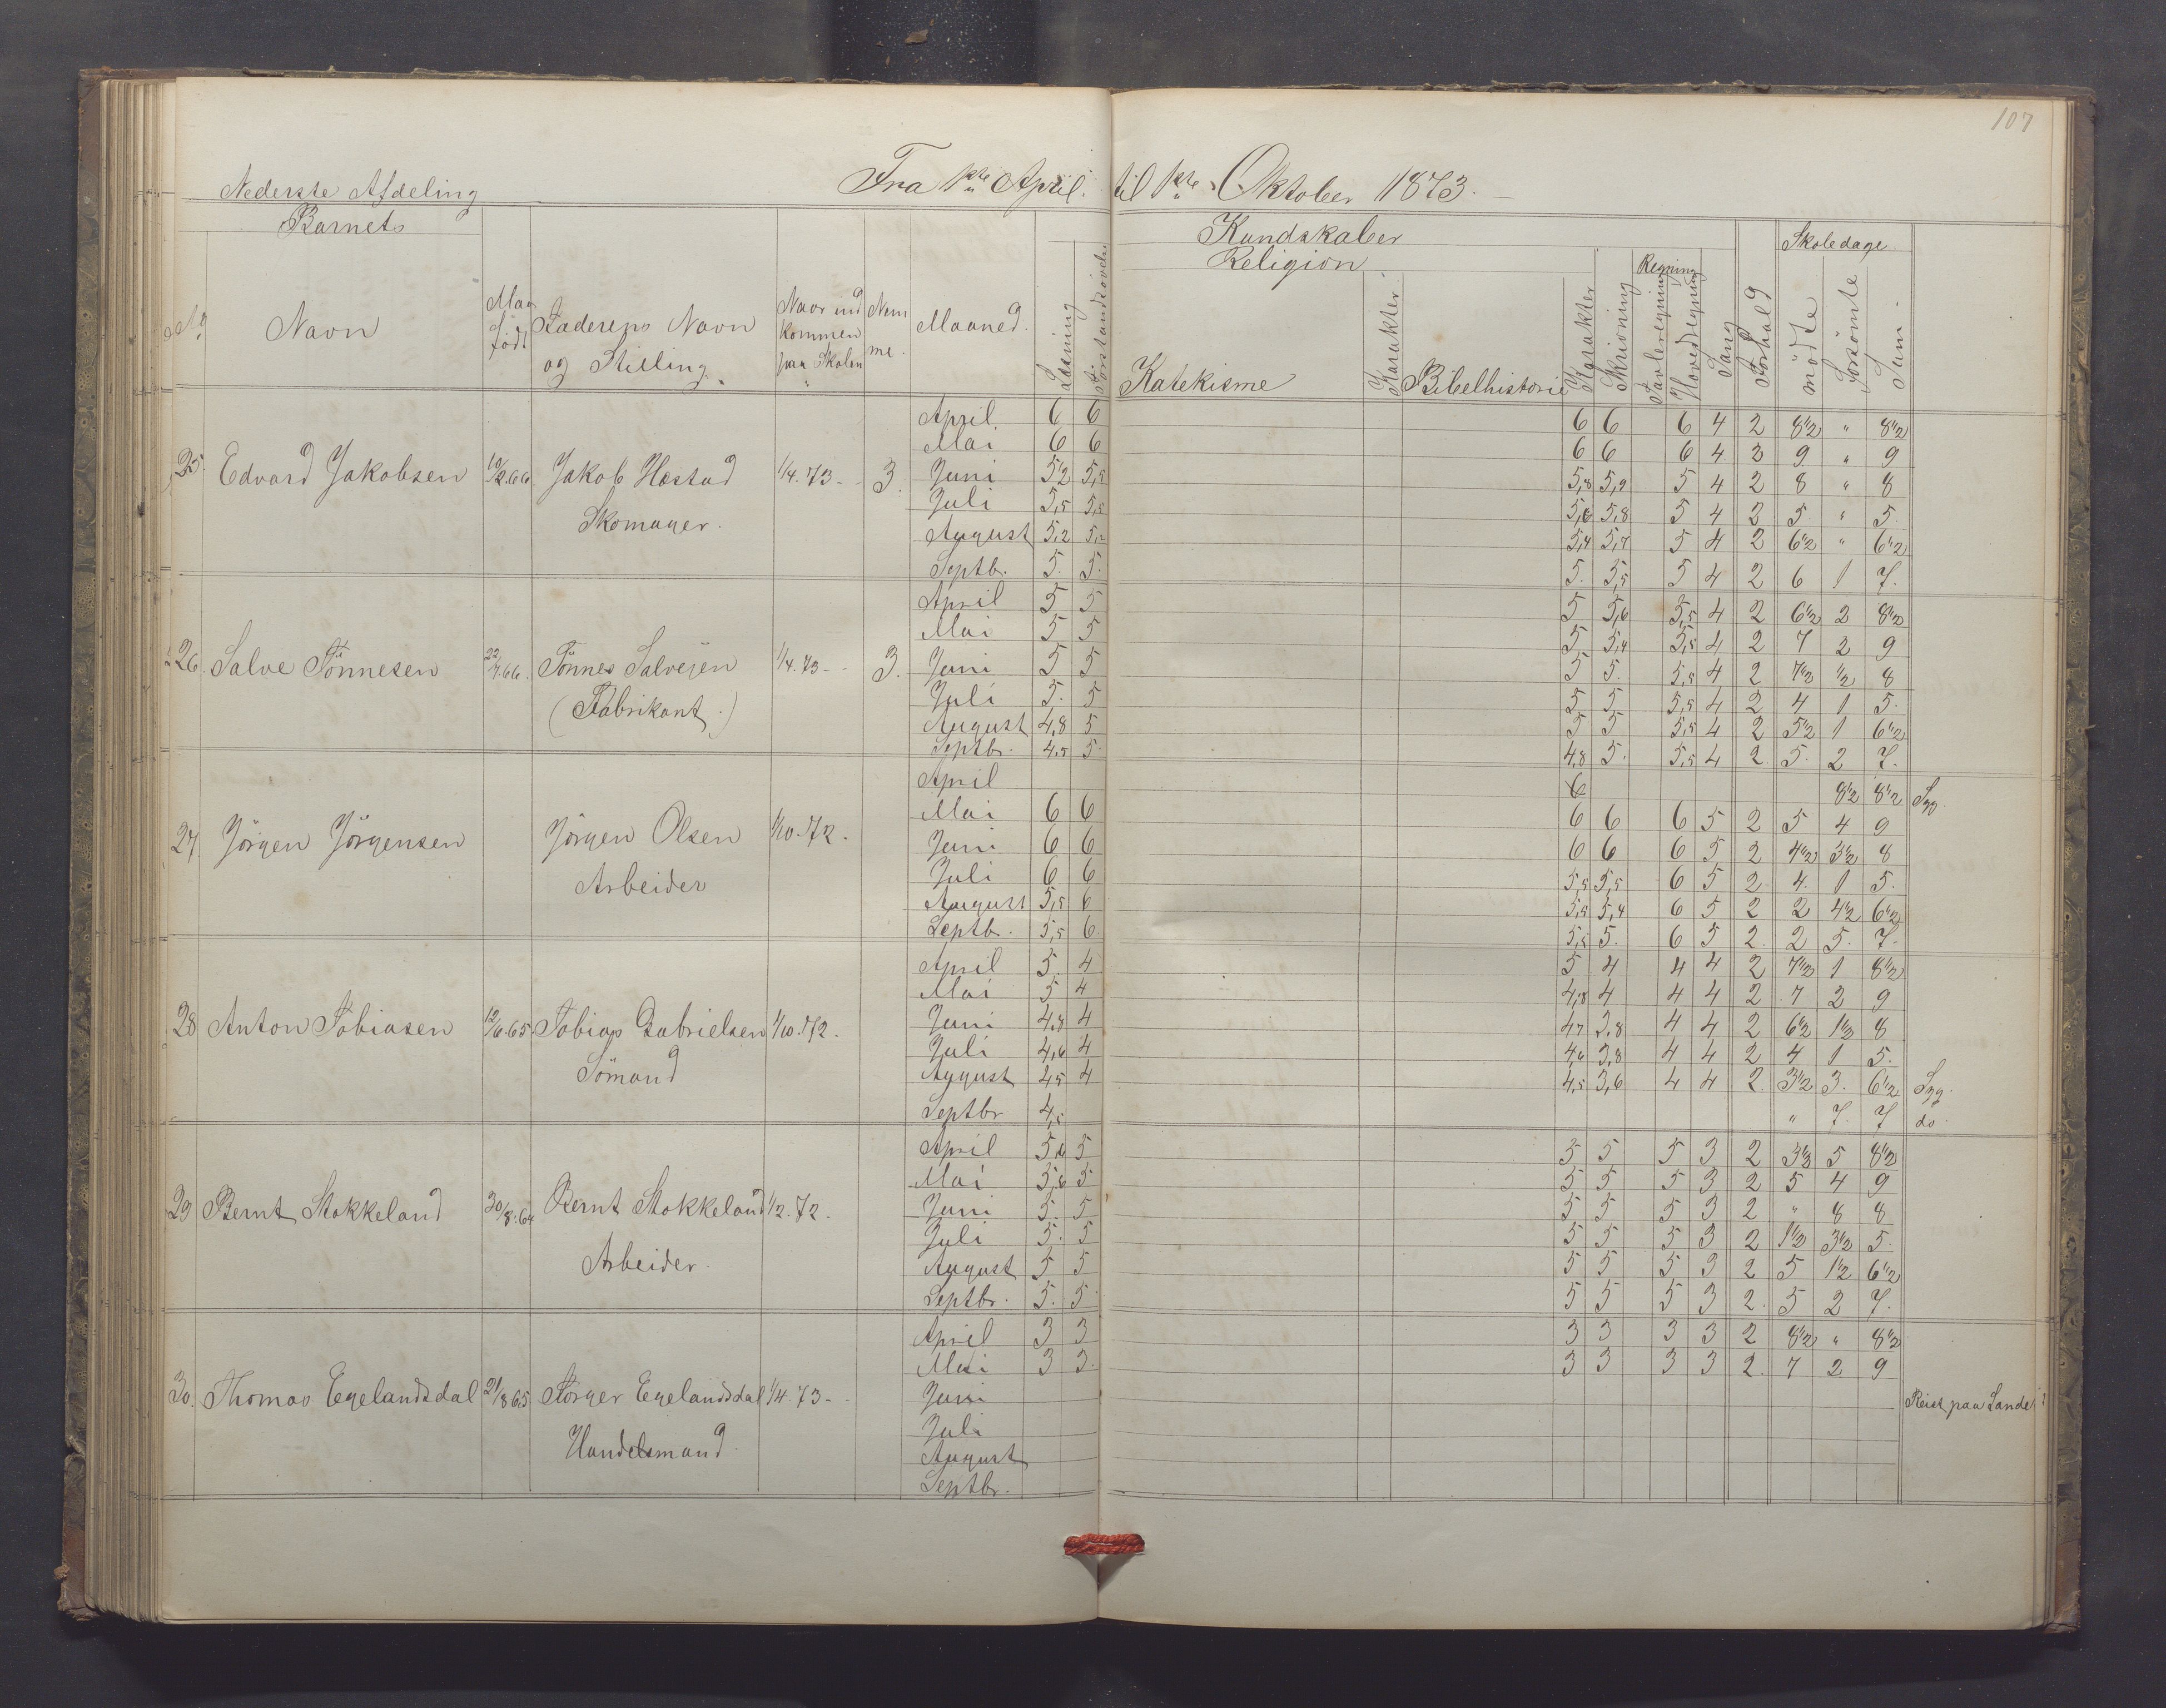 107
Nederste Afdeling Fra 1ste April. til 1ste Oktober 1873.
Barnets Kundskaber Skoledage
Religion Regning
No. Navn Naar født Faderens Navn og Stilling Naar ind kommen paa Skolen Nemme. Maaned. Læsning Forstandsøvelse Katekisme Karakter Bibelhistorie Karakter Skrivning Tavleregning Hovedregning Sang Forhold mödte forsömte Sum.
April. 6 6 6 6 6 4 2 8 1/2 " 8 1/2
Mai 6 6 6 6 6 4 2 9 " 9
25. Edvard Jakobsen 10/2.66 Jakob Hestad 1/4.73 - 3. Juni 5,2 5,5 5,8 5,9 5 4 2 8 " 8
Juli 5,5 5,5 5,6 5,8 5 4 2 5. " 5.
Skomager. August 5,2 5,2 5,4 5,7 5 4 2 6 1/2 " 6 1/2
Septb. 5. 5. 5. 5,5 5 4 2 6 1 7.
April 5 5 5 5,6 5,5 4 2 6 1/2 2 8 1/2
Mai 5 5 5 5,4 5,5 4 2 7 2 9
26. Salve Tönnesen 22/7.66. Tönnes Salvesen 1/4.73 - 3. Juni 5 5 5 5. 5,5 4 2 7 1/2 1/2 8
(Fabrikant.) Juli 5. 5 5 5 5,5 4 2 4 1 5.
August 4,8 5 5 5 5,5 4 2 5 1/2 1 6 1/2
Septb. 4,5 5. 4,8 5. 5,5 4 2. 5. 2 7.
April 6 8 1/2 8 1/2 Syg.
Mai 6 6 6 6 6 5 2 5 4 9
27. Jörgen Jörgensen Jörgen Olsen 1/10.72. Juni 6 6 6 6 6 5 2 4 1/2 3 1/2 8
Arbeider Juli 6 6 5,5 5,5 6 5 2. 4. 1 5.
August 5,5 6 5,5 5,4 6 5 2 2 4 1/2 6 1/2
Septb. 5,5 6. 5,5 5. 6 5 2. 2 5. 7.
April 5. 4 5 4 4 4 2 7 1/2 1 8 1/2
Mai 5 4 4,8 4 4 4 2 7 2 9
28 Anton Tobiasen 12/6.65. Tobias Gabrielsen 1/10.72. Juni 4,8 4 4,7 3,8 4 4 2 6 1/2 1 1/2 8
Sömand Juli 4,6 4 4,6 3,8 4 4 2 4 1 5.
August 4,5 4 4,5 3,6 4 4 2. 3 1/2 3. 6 1/2 Syg.
Septbr 4,5 " 7. 7 do.
April 5,6 5 5 5 5 3 2 3 1/2 5 8 1/2
Mai 5,6 5 5 5 5 3 2 5 4 9
29 Bernt Stokkeland 30/8.64 Bernt Stokkeland 1/2.72. Juni 5. 5 5 5 5 3 2 " 8 8
Juli 5. 5 5 5 5 3 2 1 1/2 3 1/2 5.
Arbeider. August 5 5 5 5 5 3 2 5 1 1/2 6 1/2
Septbr. 5. 5. 5 5 5 3 2. 5 2 7.
April 3 3 3 3 3 3 2 8 1/2 " 8 1/2
Mai 3 3. 3 3 3 3 2. 7 2 9
30. Thomas Egelandsdal 21/8 65 Törger Egelandsdal 1/4.73 - Juni Reist paa Landet
Juli
Handelsmand. August
Septbr.